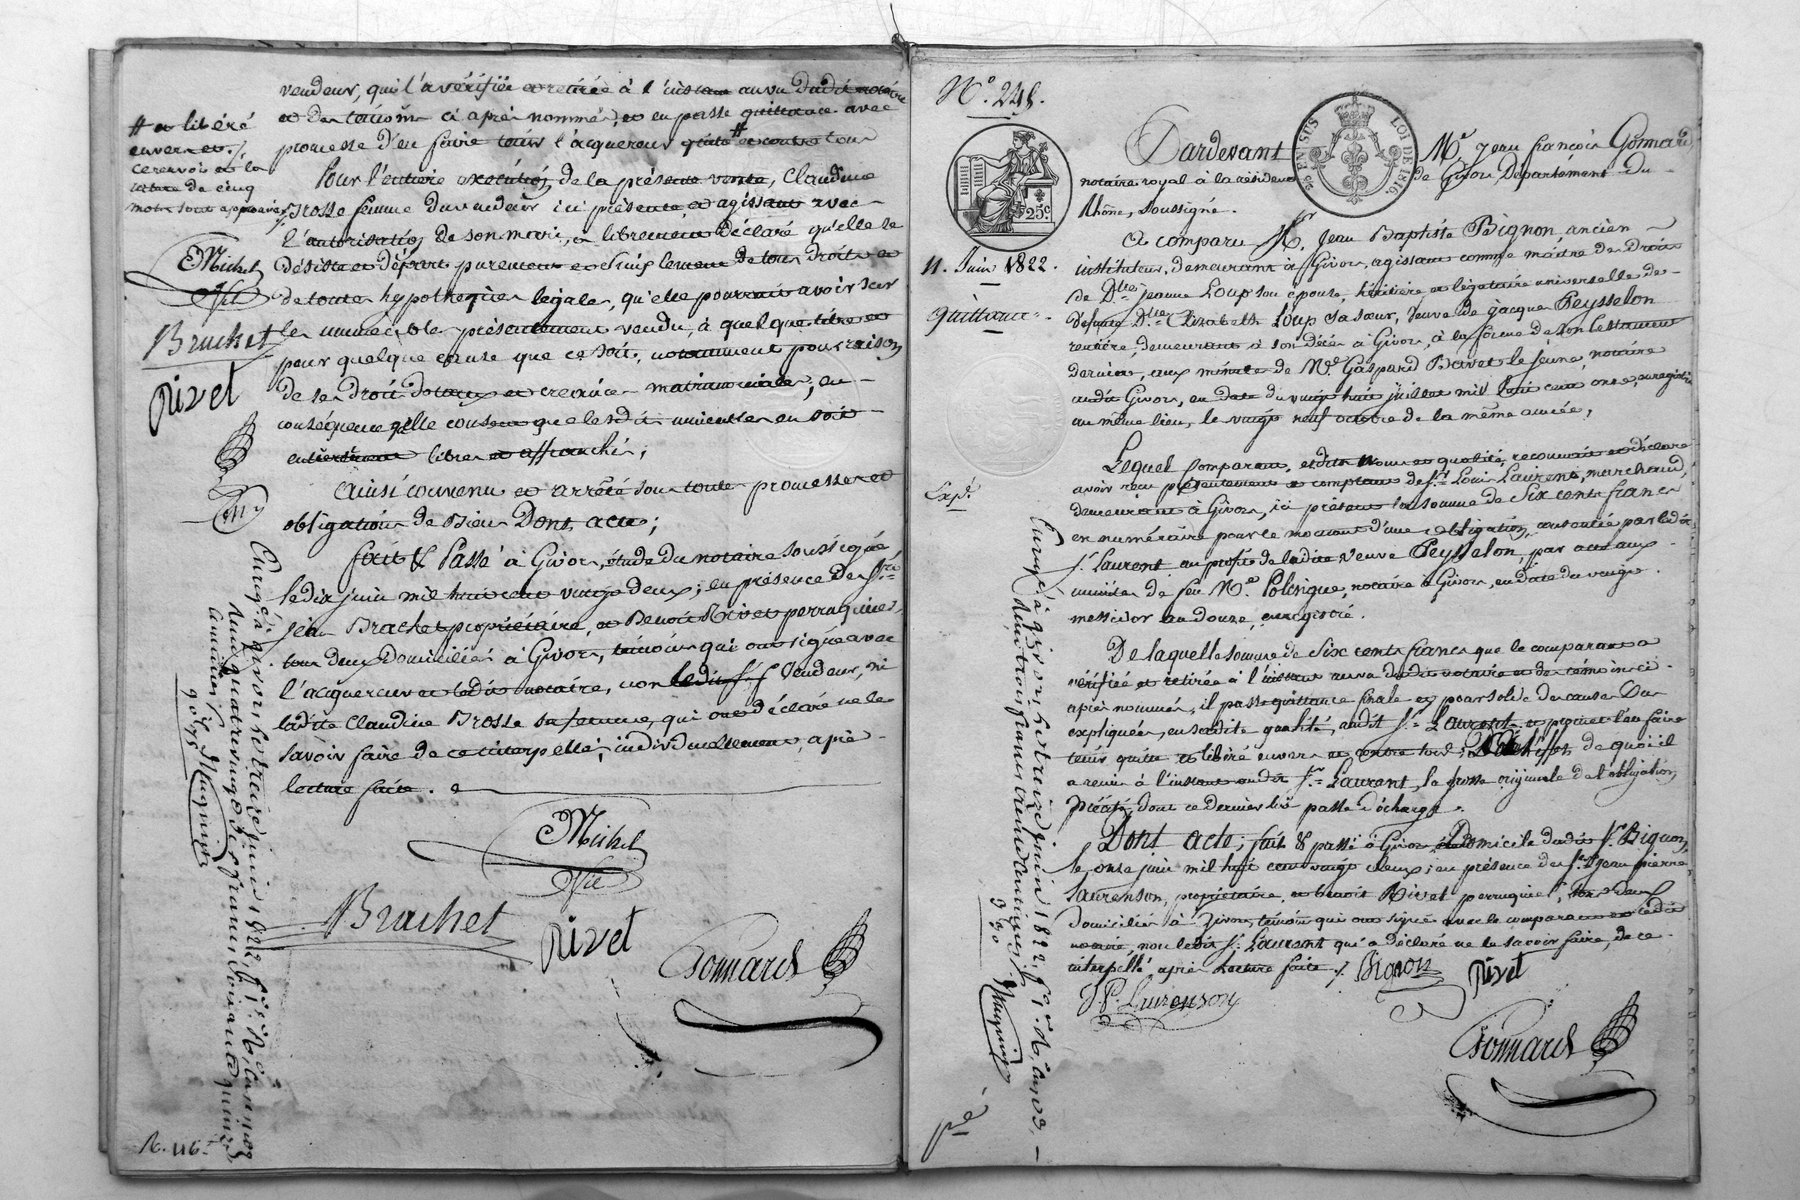 vendeur, qui l'a vérifiée et retirée à l'instant au vu dudit notaire
et des témoins ci après nommés, et en passe quittance avec
promesse d'en faire tenir l'acquereur quitte # et contre tous
# et libéré
envers et
ce renvoi et la
rature de cinq
mots sont approuvés
Pour l'entiere exécution de la présente vente, Claudine
Brosse femme du vendeur ici présente, et agissant avec
l'autorisation de son mari, a librement déclaré qu'elle se
désiste et départ purement et simplement de tous droits et
de toutes hypothèques légales, qu'elle pourrait avoir sur
les immeubles présentement vendus, à quelque titre et
pour quelque cause que ce soit, notamment pour raison
de ses droits dotaux et créances matrimoniales, en
conséquence qu'elle consent que lesdits immeubles en soit
entièrement libres et affranchis;
Michel
fils
Brachet
Rivet
Ainsi convenu et arrêté sous toutes promesses et
obligations de Biens Dont acte;
fait & Passé à Givors, étude du notaire soussigné
le dix juin mil huit cent vingt deux; en présence de srs
jean Brachet propriétaire, et Benoit Rivet perruquier,
tous deux domiciliés à Givors, témoins qui ont signé avec
l'acquereur et ledit notaire, non ledit sr vendeur, ni
ladite Claudine Brosse sa femme, qui ont déclaré ne le
savoir faire de ce interpellés, individuellement, après
lecture faite.
Michel
fils
Brachet
Rivet
Gonnard
Enreg. à givors le treize juin 1822, f° 1 r°
quatre vingt dix francs soixante quinze
centimes
90 75
R. 116
N° 248.
25c
EN SUS LOI DE 1816
11. Juin 1822.
Quittance
Expé.
Pardevant Me Jean françois Gonnard,
notaire royal à la résidence de Givors, Département du
Rhône, soussigné.
A comparu Sr. Jean Baptiste Bignon, ancien
instituteur, demeurant à Givors, agissant comme maître des droits
de Dlle jeanne Loup son épouse, héritière et légataire universelle de
defunte Dlle Elizabeth Loup sa sœur, veuve de jacques Peysselon
rentière, demeurant à son décès à Givors, à la forme de son testament
dernier, aux minutes de Me Gaspard Brivet le jeune, notaire
audit Givors, en date du vingt huit juillet mil huit cent onze, enregistré
au même lieu, le vingt neuf octobre de la même année;
Lequel comparant, esdits noms et qualité, reconnait et déclare
avoir reçu présentement et comptant de sr. Louis Laurent, marchand,
demeurant à Givors, ici présent la somme de Six cents francs
en numéraire pour le montant d'une obligation, consentie par ledit
Sr. Laurent au profit de ladite veuve Peysselon, par acte aux
minutes de feu Me. Polingue, notaire à Givors, en date du vingt
messidor an douze, enregistré.
De laquelle somme de Six cents francs que le comparant a
vérifiée et retirée à l'instant au vu dudit notaire et des témoins ci
après nommés, il passe quittance finale et pour solde des causes sus
expliquées, en sadite qualité, audit Sr. Laurent, et promet l'en faire
tenir quitte et libéré envers et contre tous; de quoi il
a remis à l'instant audit Sr. Laurent, la grosse originale de l'obligation
précitée, dont ce dernier lui passe décharge.
Dont acte; fait & passé à Givors, domicile dudit Sr. Bignon,
le onze juin mil huit cent vingt deux; en présence de srs jean pierre
Laurenson, propriétaire, et benoit Rivet perruquier, tous deux
domiciliés à Givors, témoins qui ont signé avec le comparant et ledit
notaire, non ledit Sr. Laurent qui a déclaré ne le savoir faire, de ce
interpellé après lecture faite.
Bignon
Rivet
J P. Laurenson
Gonnard
Enregé à givors le treize juin 1822, f° 1 r°
trois francs trente centimes
3 30